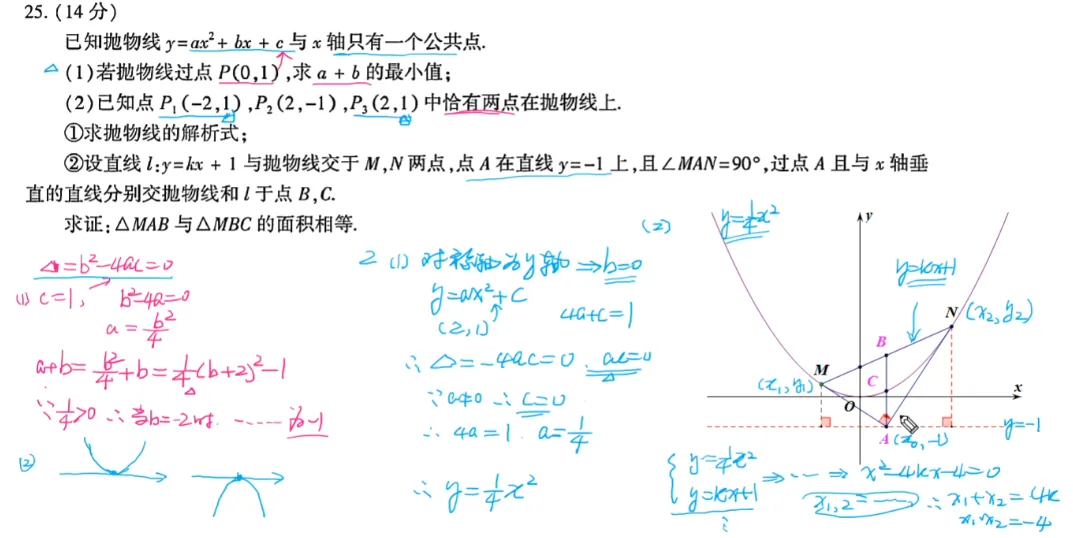 25. (14分)
已知抛物线 y=ax²+bx+c 与 x 轴只有一个公共点.
(1)若抛物线过点 P(0,1),求 a+b 的最小值;
(2)已知点 P₁(-2,1),P₂(2,-1),P₃(2,1)中恰有两点在抛物线上.
①求抛物线的解析式;
②设直线 l:y=kx+1 与抛物线交于 M,N 两点,点 A 在直线 y=-1 上,且∠MAN=90°,过点 A 且与 x 轴垂
直的直线分别交抛物线和 l 于点 B,C.
求证:△MAB 与△MBC 的面积相等.
△=b²-4ac=0
(1) c=1, b²-4a=0
a=b²/4
a+b=b²/4+b=1/4(b+2)²-1
∵1/4>0 ∴当b=-2时 ...... 为-1
(2)
2 (1) 对称轴为y轴 ⇒b=0
y=ax²+c
(2,1) 4a+c=1
∴△=-4ac=0. ac=0
∵a≠0 ∴c=0
∴4a=1. a=1/4
∴y=1/4x²
(2)
y=1/4x²
y
y=kx+1
N (x₂,y₂)
B
M
(x₁,y₁)
C
x
O
A (x₀,-1)
y=-1
{ y=1/4x²
y=kx+1 ⇒...⇒ x²-4kx-4=0
x₁,₂=...... ∴x₁+x₂=4k
x₁·x₂=-4